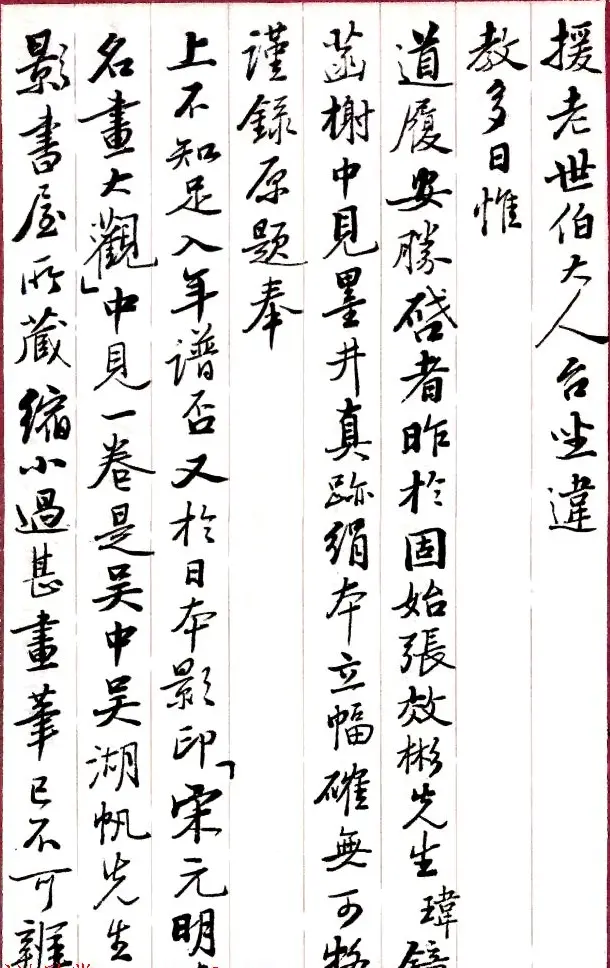 援老世伯大人台坐違
教多日惟
道履安勝啓者昨於固始張效彬先生瑋
菡榭中見墨井真跡絹本立幅確無可
謹錄原題奉
上不知足入年譜否又於日本影印「宋元明
名畫大觀」中見一卷是吳中吳湖帆先生
影書屋所藏縮小過甚畫筆已不可辨